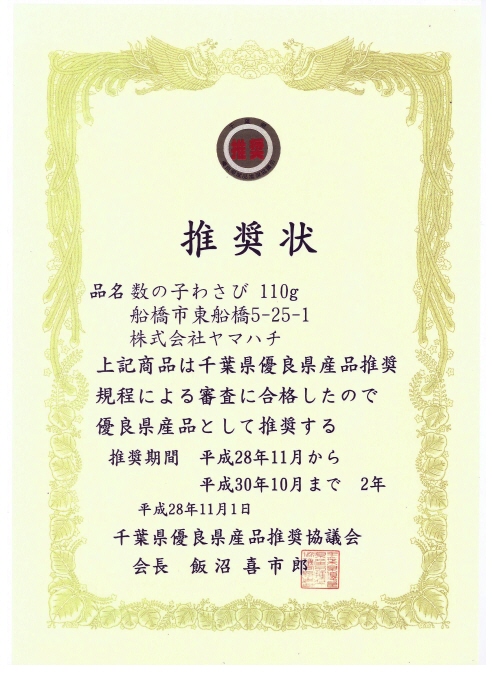 推奨
推奨状
品名 数の子わさび 110g
船橋市東船橋5-25-1
株式会社ヤマハチ
上記商品は千葉県優良県産品推奨
規程による審査に合格したので
優良県産品として推奨する
推奨期間 平成28年11月から
平成30年10月まで 2年
平成28年11月1日
千葉県優良県産品推奨協議会
会長 飯沼喜市郎